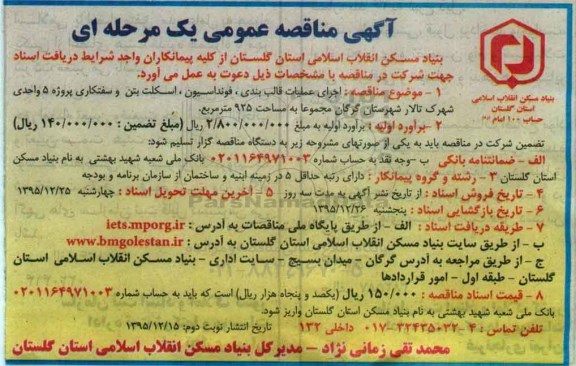 آگهی مناقصه عمومی یک مرحله ای
بنیاد مسکن انقلاب اسلامی استان گلستان از کلیه پیمانکاران واجد شرایط دریافت اسناد
جهت شرکت در مناقصه با مشخصات ذیل دعوت به عمل می آورد.
بنیاد مسکن انقلاب اسلامی
استان گلستان
حساب ۱۰۰ امام
۱ - موضوع مناقصه : اجرای عملیات قالب بندی ، فونداسیون ، اسکلت بتن و سفتکاری پروژه ۵ واحدی
شهرک تالار شهرستان گرگان مجموعاً به مساحت ۹۲۵ مترمربع.
۲ - برآورد اولیه : برآورد اولیه به مبلغ ۲/۸۰۰/۰۰۰/۰۰۰ ریال (مبلغ تضمین : ۱۴۰/۰۰۰/۰۰۰ ریال)
تضمین شرکت در مناقصه باید به یکی از صورتهای مشروحه زیر به دستگاه مناقصه گزار تسلیم شود:
الف - ضمانتنامه بانکی ب -وجه نقد به حساب شماره ۰۲۰۱۱۶۴۹۷۱۰۰۳ بانک ملی شعبه شهید بهشتی به نام بنیاد مسکن
استان گلستان ۳ - رشته و گروه پیمانکار : دارای رتبه حداقل ۵ در زمینه ابنیه و ساختمان از سازمان برنامه و بودجه
۴ - تاریخ فروش اسناد : از تاریخ نشر آگهی به مدت سه روز ۵ - آخرین مهلت تحویل اسناد : چهارشنبه ۱۳۹۵/۱۲/۲۵
۶ - تاریخ بازگشایی اسناد : پنجشنبه ۱۳۹۵/۱۲/۲۶
۷ - طریقه دریافت اسناد : الف - از طریق پایگاه ملی مناقصات به آدرس : iets.mporg.ir
ب - از طریق سایت بنیاد مسکن انقلاب اسلامی استان گلستان به آدرس : www.bmgolestan.ir
ج - از طریق مراجعه به آدرس گرگان - میدان بسیج - سایت اداری - بنیاد مسکن انقلاب اسلامی استان
گلستان - طبقه اول - امور قراردادها
۸ - قیمت اسناد مناقصه : ۱۵۰/۰۰۰ ریال (یکصد و پنجاه هزار ریال) است که باید به حساب شماره ۰۲۰۱۱۶۴۹۷۱۰۰۳
بانک ملی شعبه شهید بهشتی به نام بنیاد مسکن انقلاب اسلامی استان گلستان واریز شود.
تلفن تماس : ۴ -۳۲۴۳۵۰۳۲-۰۱۷ داخلی ۱۳۲ تاریخ انتشار نوبت دوم: ۱۳۹۵/۱۲/۱۵
محمد تقی زمانی نژاد - مدیرکل بنیاد مسکن انقلاب اسلامی استان گلستان